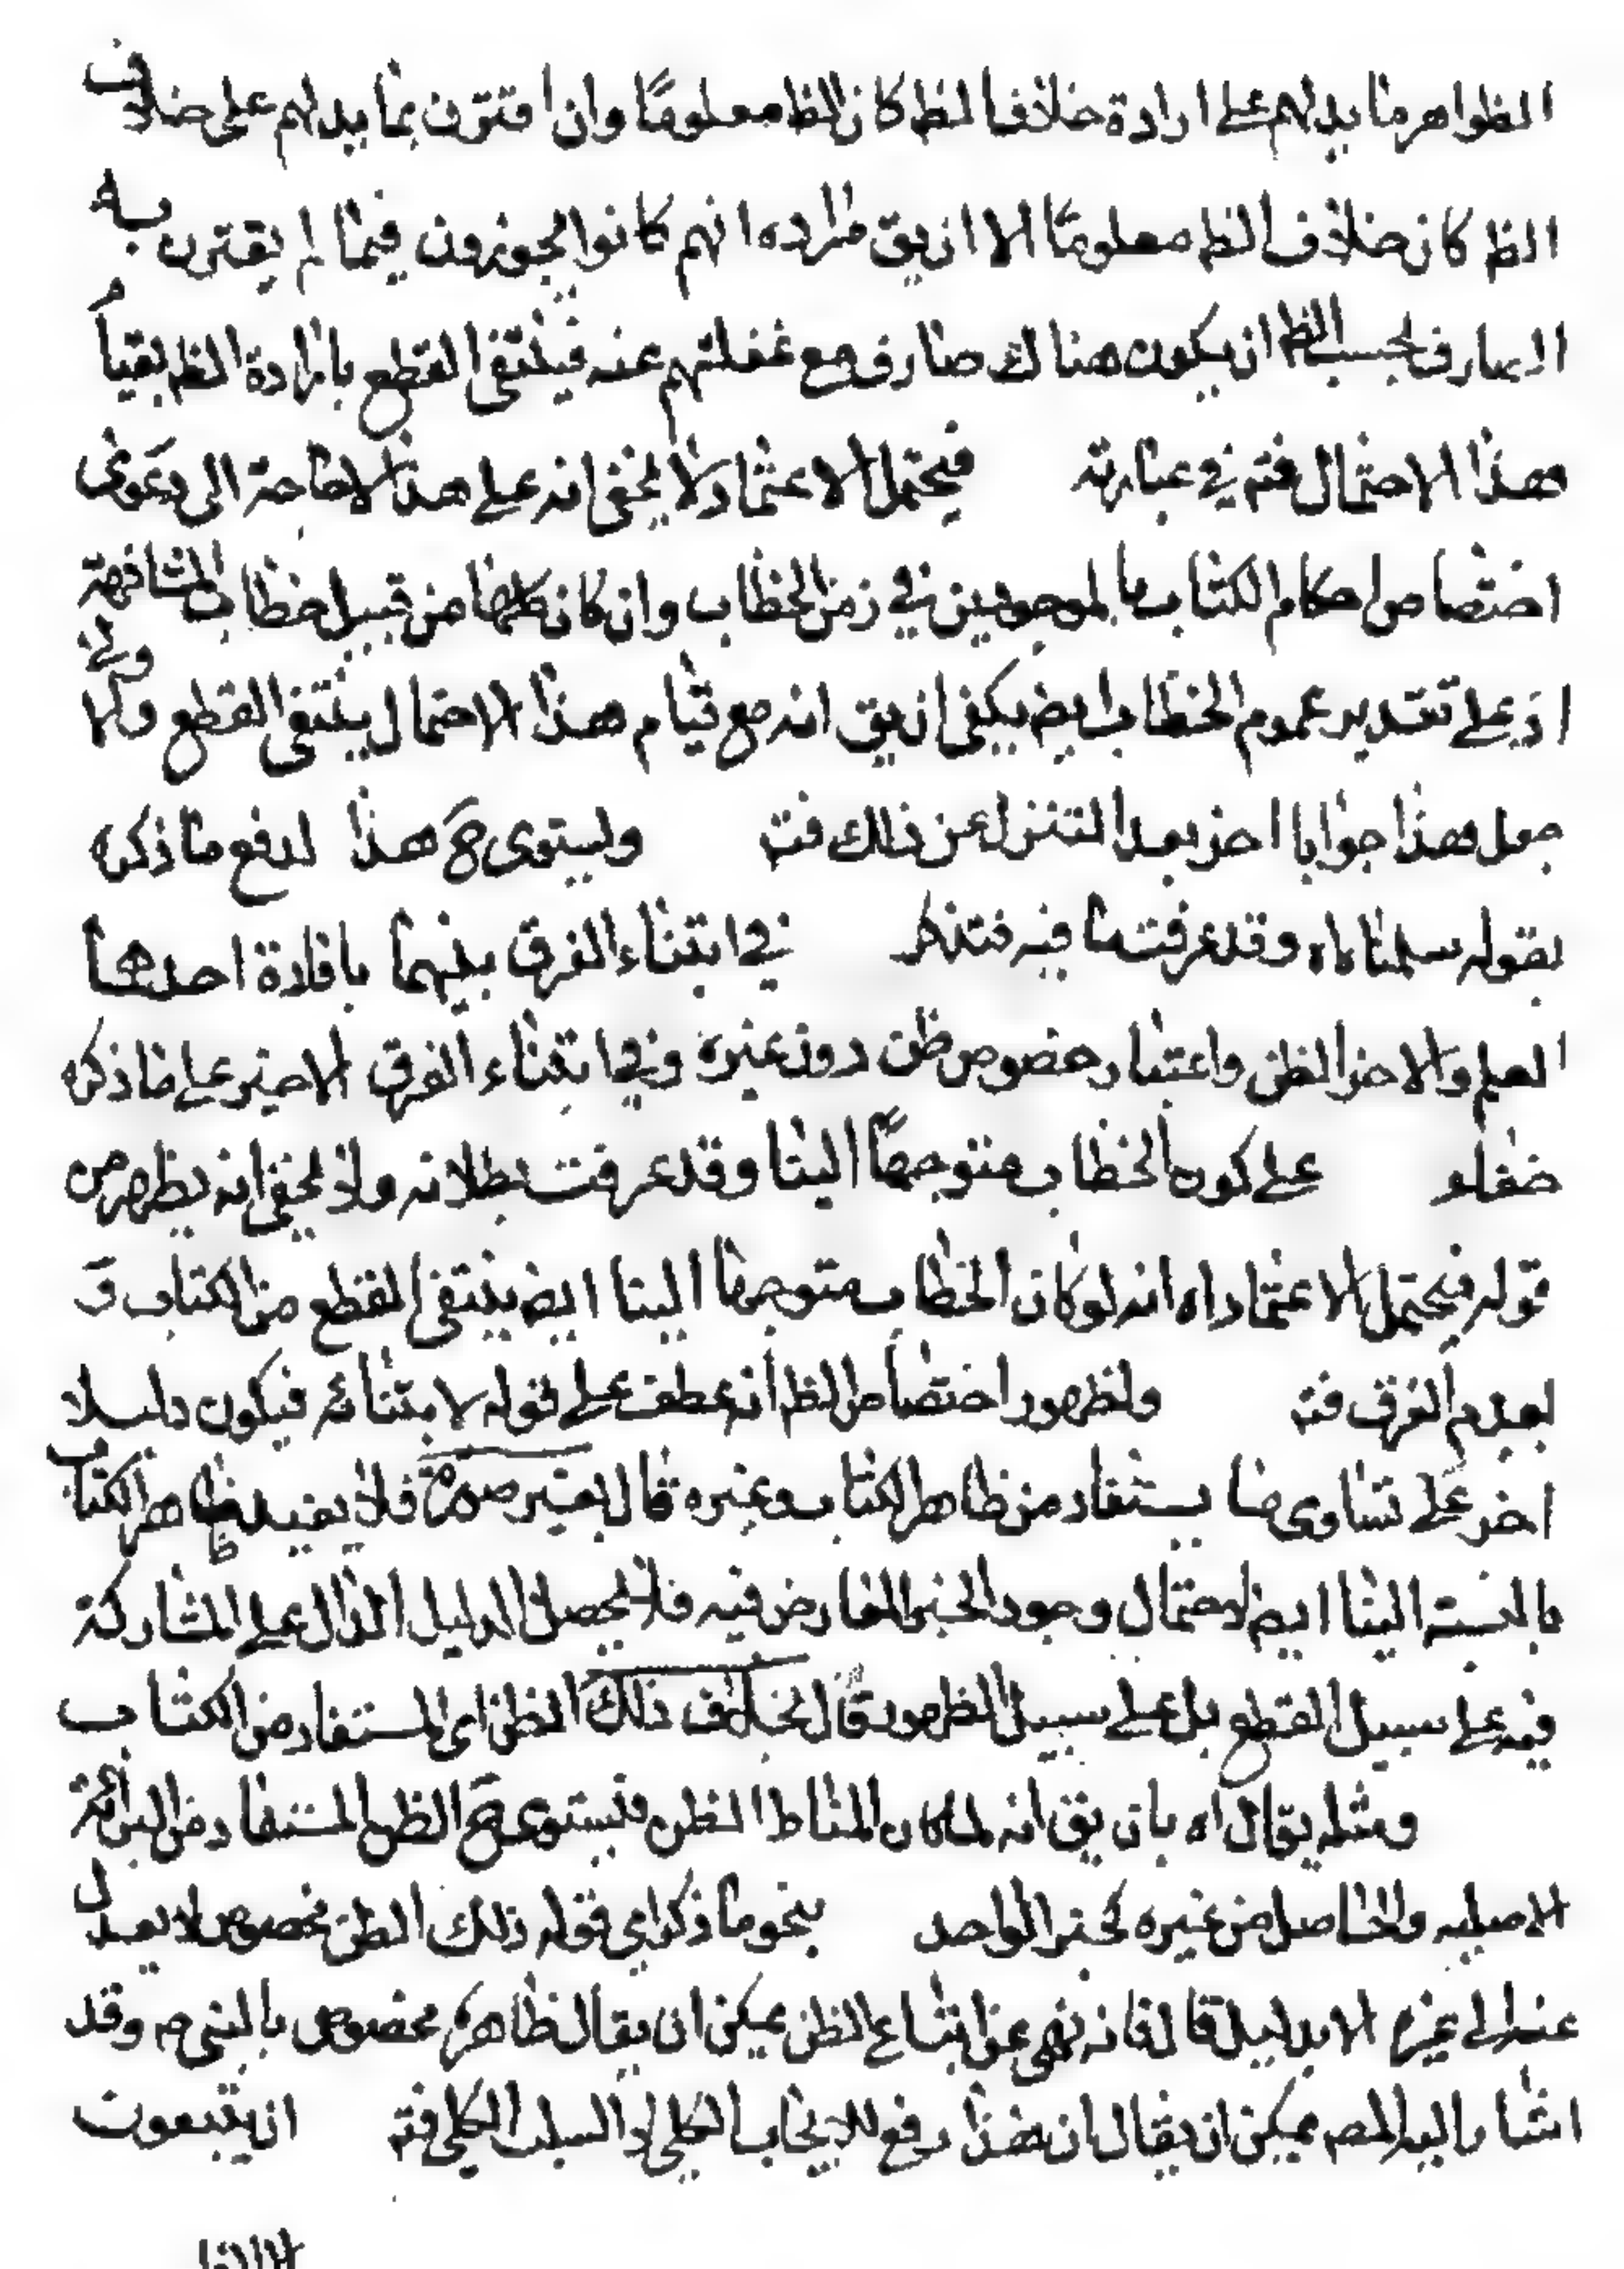 الظواهر ما يدلهم على ارادة خلاف الظ كان الظ معلومًا وان اقترن بما يدلهم على خلاف
الظ كان خلاف الظ معلومًا الا ان يق مراده انهم كانوا يجوزون فيما لم يقترن به
الصارف بحسب الظ ان يكون هناك صارف مع غفلتهم عنه فينتفى القطع بارادة الظ بقيام
هذا الاحتمال فتم في عبارته فيحتمل الاعتماد ولا يخفى انه على هذا لا حاجة الى دعوى
اختصاص احكام الكتاب بالموجودين في زمن الخطاب وان كان كلها من قبيل خطاب المشافهة
اذ على تقدير عموم الخطاب ايض يكفى ان يق انه مع قيام هذا الاحتمال ينتفى القطع ولا
جعل هذا جوابا اخر بعد التنزل عن ذلك فتم وليستوى ح هذا لدفع ما ذكره
بقوله سلمنا اه وقد عرفت ما فيه فتذكر في ابتناء الفرق بينهما بافادة احدهما
العلم والاخر الظن واعتبار خصوص ظن دون غيره وفي ابتناء الفرق الاخير على ما ذكره
على كون الخطاب متوجهًا الينا وقد عرفت بطلانه ولا يخفى انه يظهر من
قوله فيحتمل الاعتماد اه انه لو كان الخطاب متوجها الينا ايض ينتفى القطع من الكتاب
بعدم الفرق فتم ولظهور اختصاص الظ انه عطف على قوله لابتنائه فيكون دليلا
اخر على تساوى ما يستفاد من ظاهر الكتاب وغيره قال بغير صورة فلا يفيد ظاهر الكتاب
بالنسبة الينا ايض لاحتمال وجود الخبر المعارض فيه فلا يحصل الدليل الدال على المشاركة
فيه على سبيل القطع بل على سبيل الظهور قال بخلاف ذلك الظن اى المستفاد من الكتاب
ومثله يقال اه بان يق انه لما كان المناط الظن فيستوى ح الظن المستفاد من البرائة
الاصلية والحاصل من غيره كخبر الواحد بنحو ما ذكر اى قوله ذلك الظن مخصوص لا يعدل
عنه الى غيره الا بدليل قال فانه نهى عن اتباع الظن يمكن ان يقال ظاهره مخصوص بالنبى ص وقد
اشار اليه المصم يمكن ان يقال ان هذا رفع للايجاب الكلى لا السلب الكلى فتم ان يتبعون
الا الظن